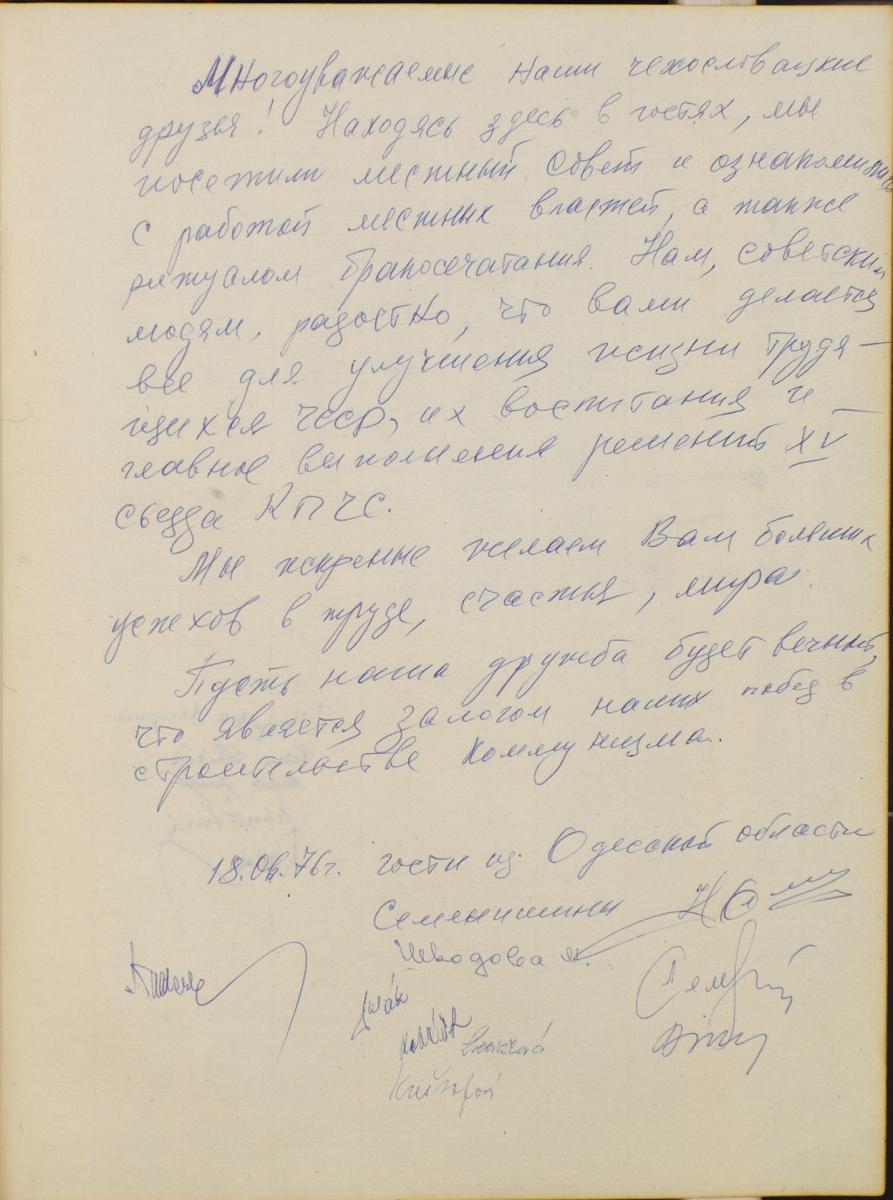 Многоуважаемые наши чехословацкие
друзья! Находясь здесь в гостях, мы
посетили местный совет и ознакомились
с работой местных властей, а также
ритуалом бракосочетания. Нам, советским
людям, радостно, что вами делается
все для улучшения жизни трудя-
щихся ЧССР, их воспитания и
главное выполнения решений XV
съезда КПЧС.
Мы искренне желаем Вам больших
успехов в труде, счастья, мира.
Пусть наша дружба будет вечной,
что является залогом наших побед в
строительстве коммунизма.
18.06.76г. гости из Одесской области
Семенишины